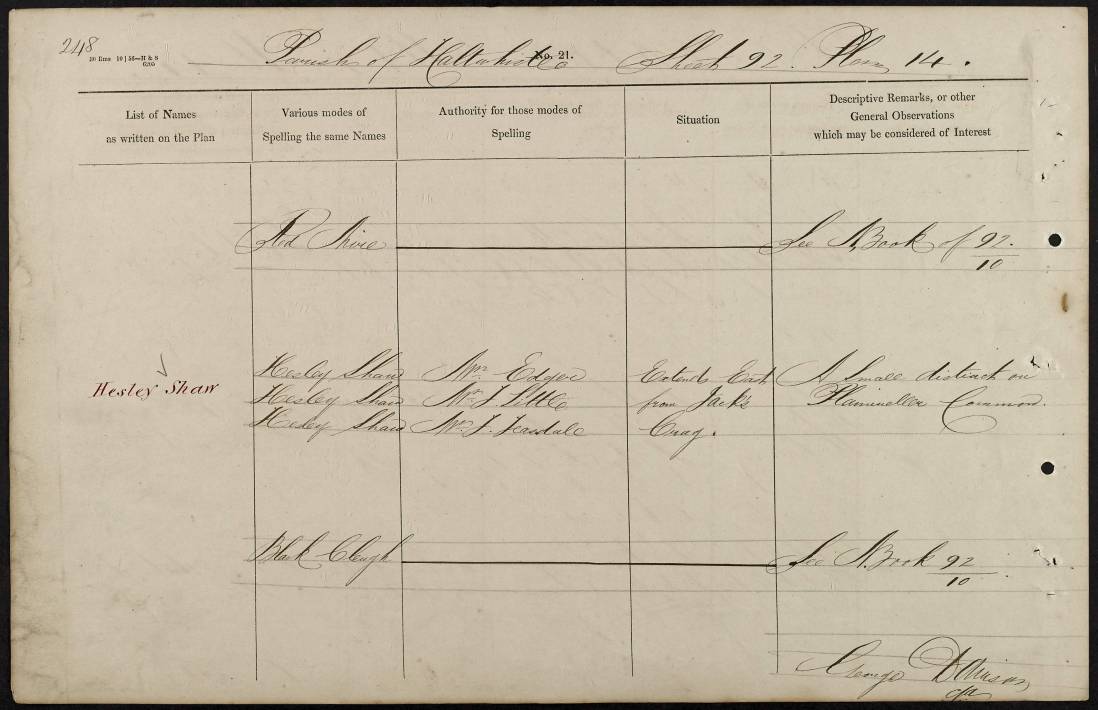 248
No. 21.
Parish of Haltwhistle Sheet 92. Plan 14.
List of Names
as written on the Plan
Various modes of
Spelling the same Names
Authority for those modes of
Spelling
Situation
Descriptive Remarks, or other
General Observations
which may be considered of Interest
Red Shire
See N. Book of 92.
10
Hesley Shaw
Hesley Shaw
Hesley Shaw
Hesley Shaw
Mr. Edger
Mr. J Little
Mr. J. Teasdale
Extends East
from Jack's
Crag.
A Small district on
Plainmeller Common.
Black Cleugh
See N. Book 92
10
George